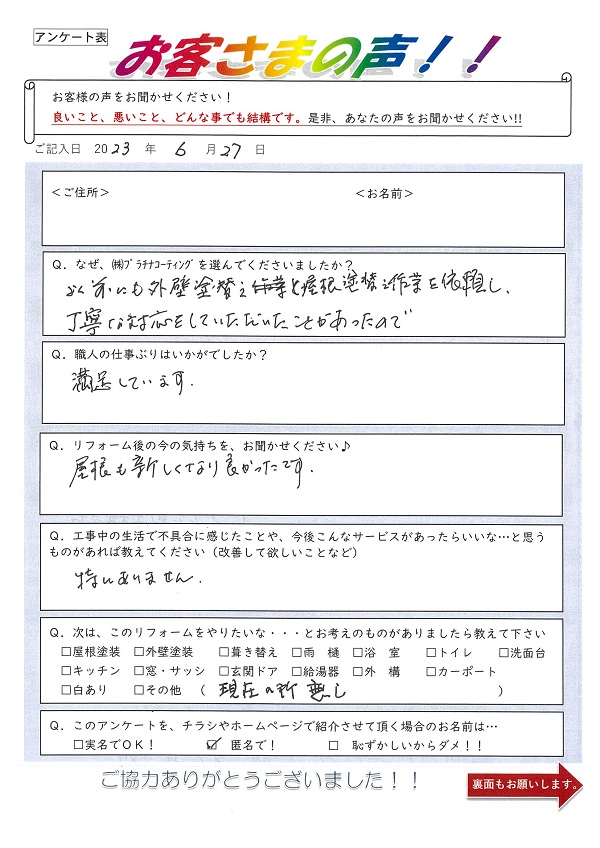 アンケート表
お客さまの声！！
お客様の声をお聞かせください！
良いこと、悪いこと、どんな事でも結構です。是非、あなたの声をお聞かせください!!
ご記入日 2023 年 6 月 27 日
＜ご住所＞ ＜お名前＞
Q．なぜ、㈱ﾌﾟﾗﾁﾅｺｰﾃｨﾝｸﾞを選んでくださいましたか？
以前にも外壁塗替え作業と屋根塗替え作業を依頼し、
丁寧な対応をしていただいたことがあったので
Q．職人の仕事ぶりはいかがでしたか？
満足しています．
Q．リフォーム後の今の気持ちを、お聞かせください♪
屋根も新しくなり良かったです．
Q．工事中の生活で不具合に感じたことや、今後こんなサービスがあったらいいな…と思う
ものがあれば教えてください（改善して欲しいことなど）
特にありません．
Q．次は、このリフォームをやりたいな・・・とお考えのものがありましたら教えて下さい
□屋根塗装 □外壁塗装 □葺き替え □雨 樋 □浴 室 □トイレ □洗面台
□キッチン □窓・サッシ □玄関ドア □給湯器 □外 構 □カーポート
□白あり □その他 （ 現在の所無し ）
Q．このアンケートを、チラシやホームページで紹介させて頂く場合のお名前は…
□実名でOK！ ☑ 匿名で！ □ 恥ずかしいからダメ！！
ご協力ありがとうございました！！
裏面もお願いします。